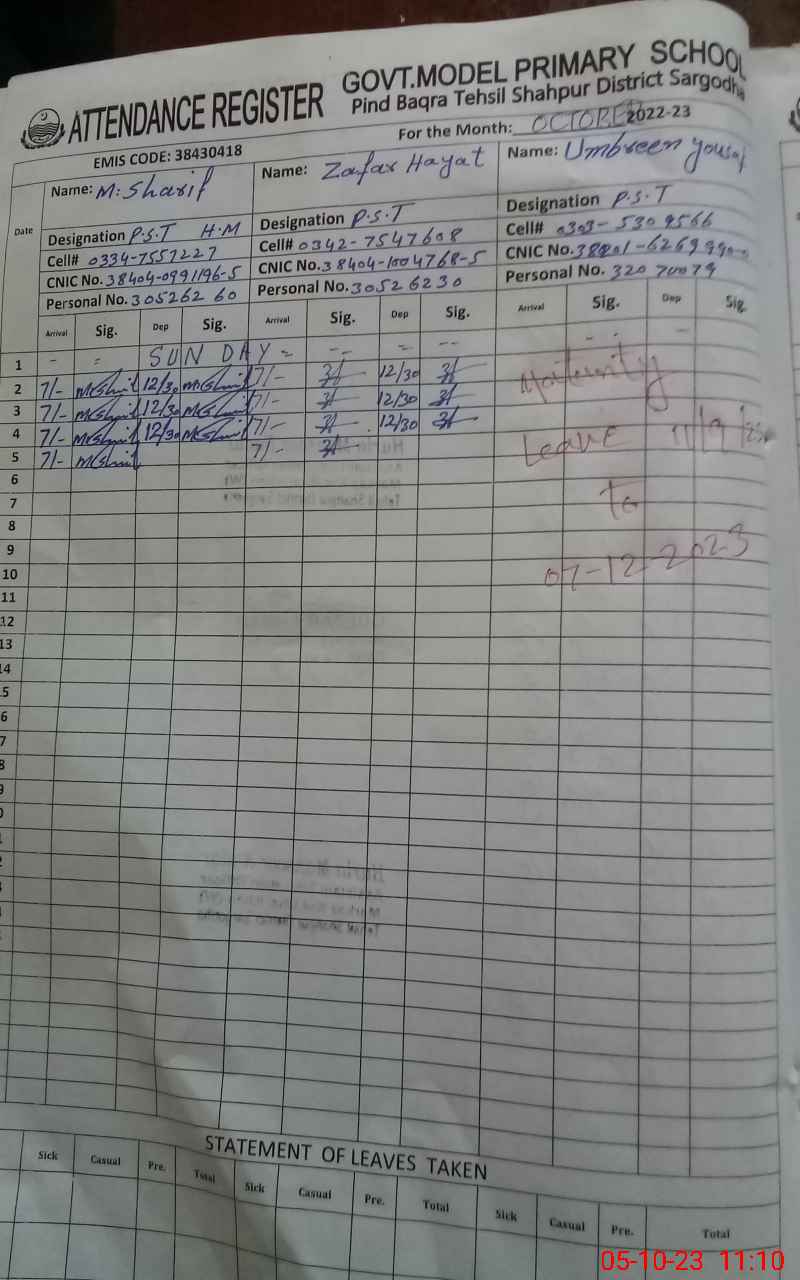 ATTENDANCE REGISTER
GOVT.MODEL PRIMARY SCHOOL
Pind Baqra Tehsil Shahpur District Sargodha
EMIS CODE: 38430418
For the Month: OCTOBER 2022-23
Date
Name: M. Sharif
Name: Zafar Hayat
Name: Umbreen Yousaf
Designation P.S.T H.M
Designation P.S.T
Designation P.S.T
Cell# 0334-7557227
Cell# 0342-7547608
Cell# 0303-5309566
CNIC No. 38404-0991196-5
CNIC No. 38404-1004768-5
CNIC No.
Personal No. 30526260
Personal No. 30526230
Personal No. 32070079
Arrival Sig. Dep Sig. Arrival Sig. Dep Sig. Arrival Sig. Dep Sig.
1 - = SUNDAY = -- = --
2 7/- 12/30 7/- 12/30
3 7/- 12/30 7/- 12/30
4 7/- 12/30 7/- 12/30
5 7/- 7/-
Maternity
Leave
To
07-12-2023
6
7
8
9
10
11
12
13
14
STATEMENT OF LEAVES TAKEN
Sick Casual Pre. Total Sick Casual Pre. Total Sick Casual Pre. Total
05-10-23 11:10